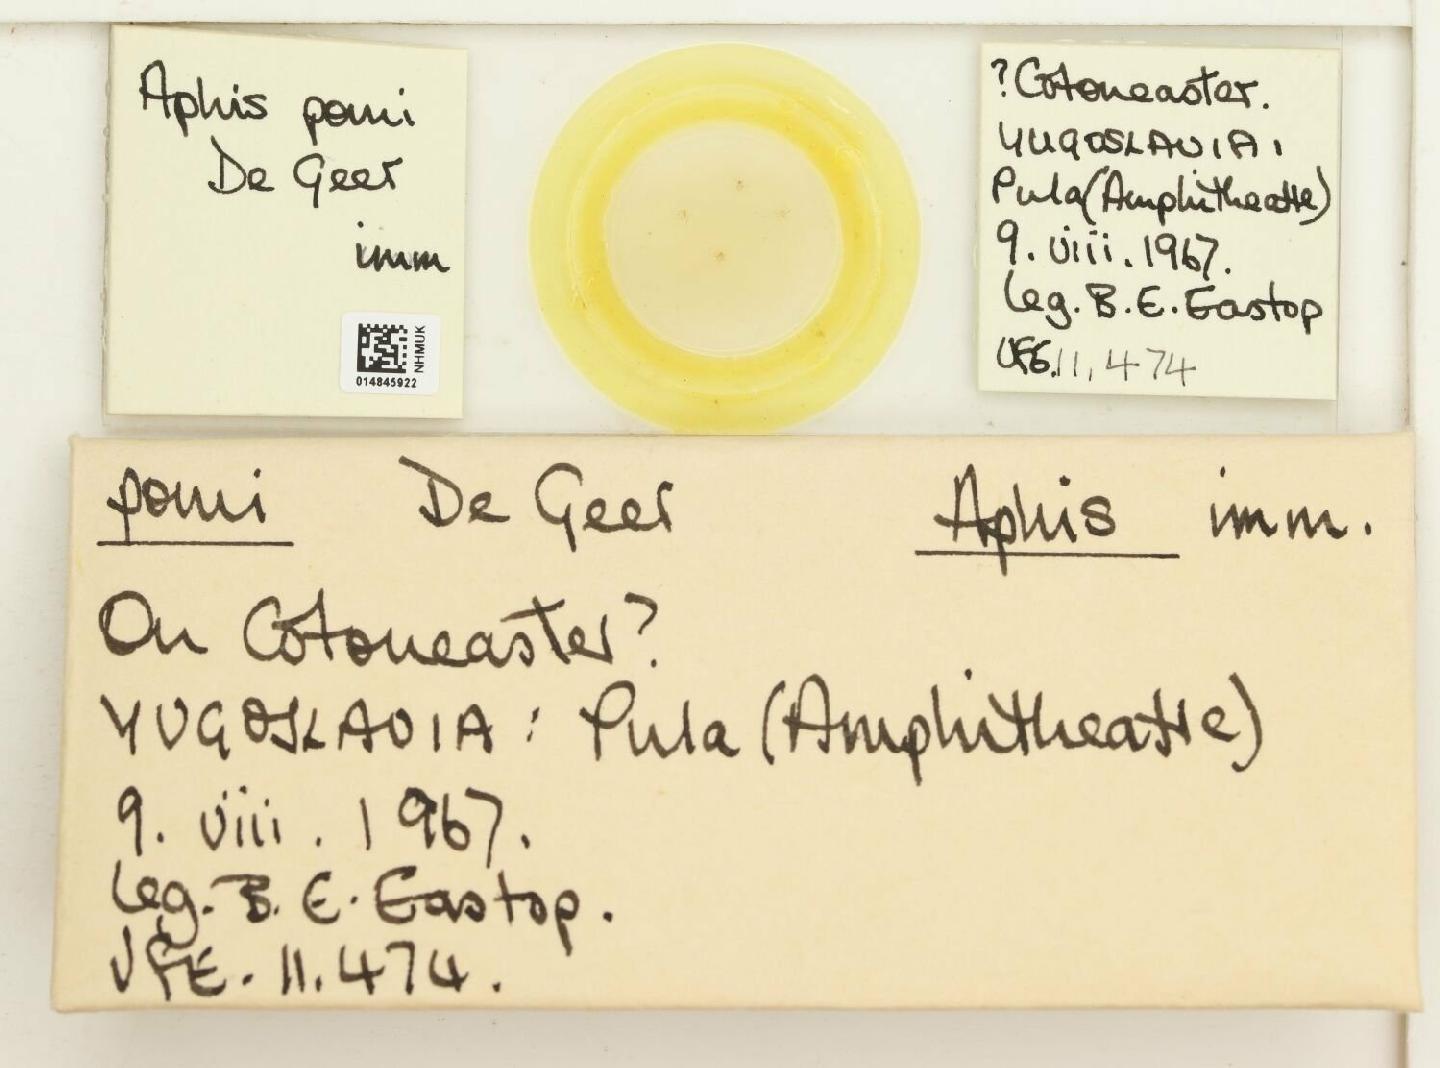 Aphis pomi
De Geer
imm
NHMUK
014845922
?Cotoneaster.
YUGOSLAVIA:
Pula (Amphitheatre)
9. viii. 1967.
Leg. B. E. Eastop
VFE. 11,474
pomi De Geer Aphis imm.
On Cotoneaster?
YUGOSLAVIA: Pula (Amphitheatre)
9. viii. 1967.
Leg. B. E. Eastop.
VFE. 11.474.